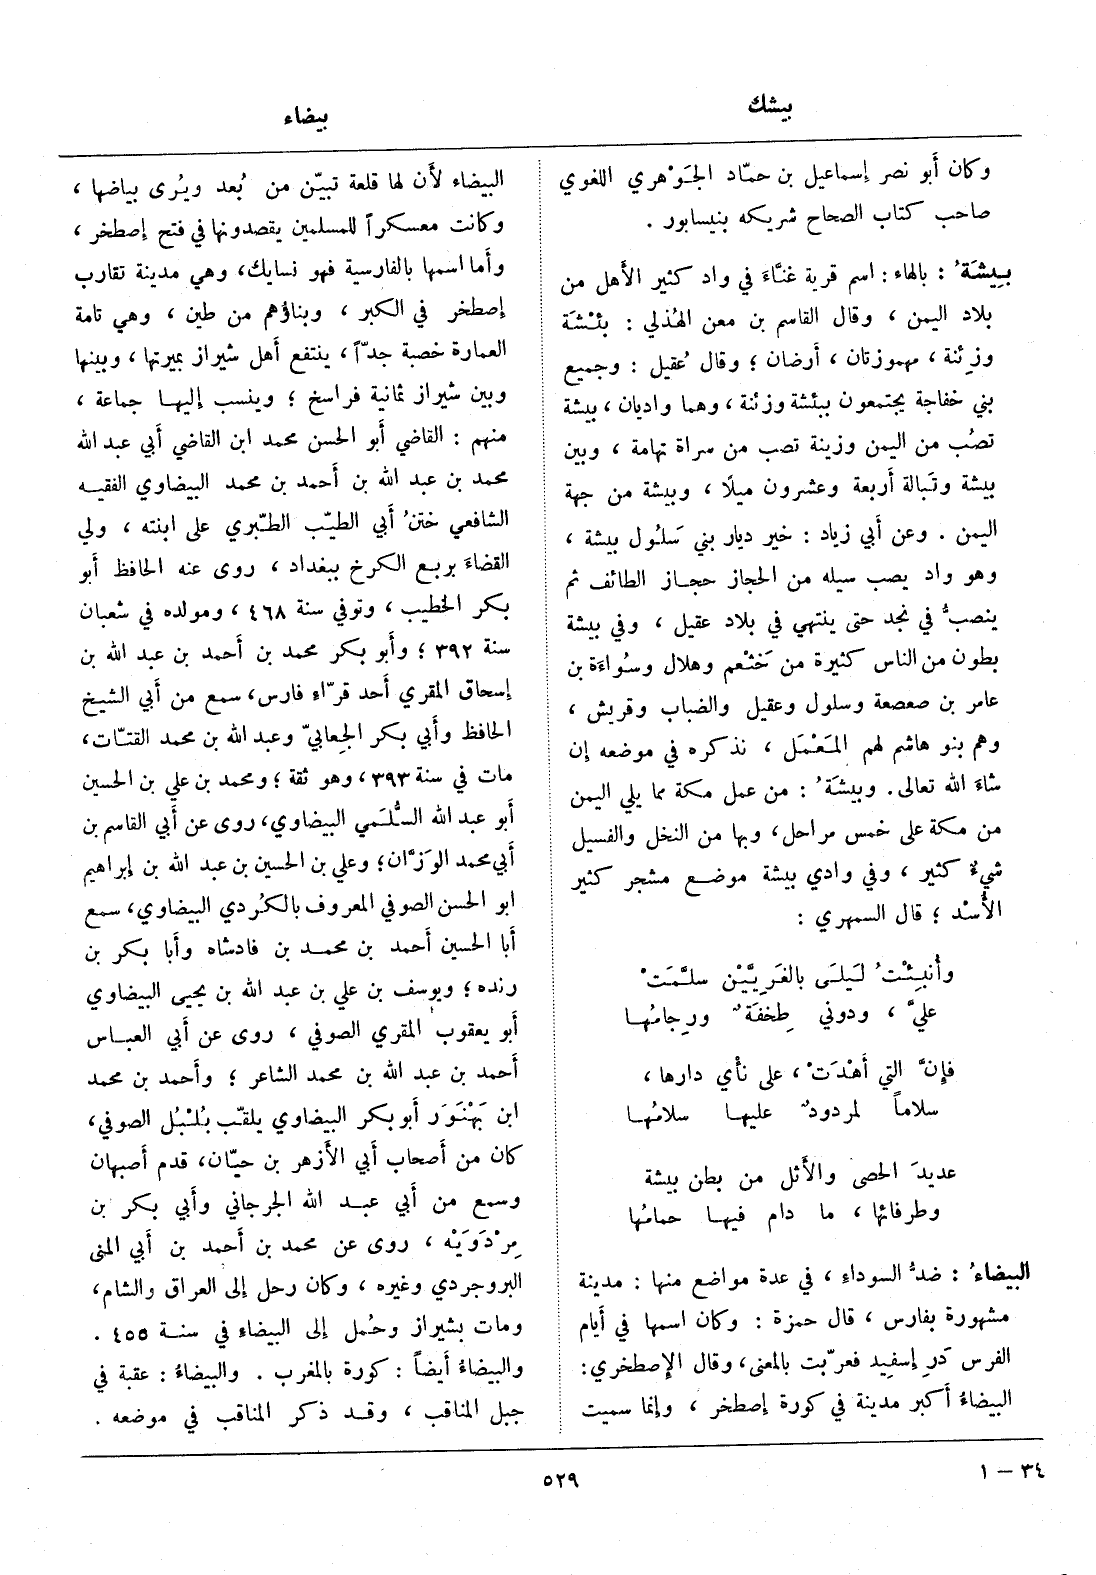 بيشك
بيضاء
وكان أبو نصر إسماعيل بن حمّاد الجَوْهري اللغوي
صاحب كتاب الصحاح شريكه بنيسابور .
بِيشَةُ : بالهاء : اسم قرية غنَّاءَ في واد كثير الأهل من
بلاد اليمن ، وقال القاسم بن معن الهُذلي : بئْشَة
وزِئنة ، مهموزتان ، أرضان ؛ وقال عُقيل : وجميع
بني خفاجة يجتمعون ببئشة وزئنة ، وهما واديان ، بيشة
تصُب من اليمن وزينة تصب من سراة تهامة ، وبين
بيشة وتَبالة أربعة وعشرون ميلًا ، وبيشة من جهة
اليمن . وعن أبي زياد : خير ديار بني سَلُول بيشة ،
وهو واد يصب سيله من الحجاز حجاز الطائف ثم
ينصبُّ في نجد حتى ينتهي في بلاد عقيل ، وفي بيشة
بطون من الناس كثيرة من خَثْعم وهلال وسُواءَة بن
عامر بن صعصعة وسلول وعقيل والضباب وقريش ،
وهم بنو هاشم لهم المَعْمَل ، نذكره في موضعه إن
شاءَ الله تعالى . وبيشَةُ : من عمل مكة مما يلي اليمن
من مكة على خمس مراحل ، وبها من النخل والفسيل
شيءٌ كثير ، وفي وادي بيشة موضع مشجر كثير
الأُسْد ؛ قال السمهري :
وأُنبِئْتُ لَيلَى بالغَرِيَّيْن سلَّمَتْ
عليَّ ، ودوني طِخفَةٌ ورِجامُها
فإنَّ التي أَهْدَتْ ، على نأي دارها ،
سلاماً لمردودٌ عليها سلامُها
عديدَ الحصى والأَثل من بطن بيشة
وطرفائها ، ما دام فيها حمامُها
البيضاءُ : ضدُّ السوداءِ ، في عدة مواضع منها : مدينة
مشهورة بفارس ، قال حمزة : وكان اسمها في أيام
الفرس دَرِ إسفيد فعرّبت بالمعنى ، وقال الإصطخري :
البيضاءُ أكبر مدينة في كورة إصطخر ، وإنما سميت
البيضاء لأَن لها قلعة تبيّن من بُعد ويُرى بياضها ،
وكانت معسكراً للمسلمين يقصدونها في فتح إصطخر ،
وأما اسمها بالفارسية فهو نسايك ، وهي مدينة تقارب
إصطخر في الكبر ، وبناؤهم من طين ، وهي تامة
العمارة خصبة جدّاً ، ينتفع أهل شيراز بميرتها ، وبينها
وبين شيراز ثمانية فراسخ ؛ وينسب إليها جماعة ،
منهم : القاضي أبو الحسن محمد ابن القاضي أبي عبد الله
محمد بن عبد الله بن أحمد بن محمد البيضاوي الفقيه
الشافعي ختنُ أبي الطيّب الطّبري على ابنته ، ولي
القضاءَ بربع الكرخ ببغداد ، روى عنه الحافظ أبو
بكر الخطيب ، وتوفي سنة ٤٦٨ ، ومولده في شعبان
سنة ٣٩٢ ؛ وأبو بكر محمد بن أحمد بن عبد الله بن
إسحاق المقري أحد قرّاء فارس ، سمع من أبي الشيخ
الحافظ وأبي بكر الجعابيّ وعبد الله بن محمد القتّات ،
مات في سنة ٣٩٣ ، وهو ثقة ؛ ومحمد بن علي بن الحسين
أبو عبد الله السُّلَمي البيضاوي ، روى عن أبي القاسم بن
أبي محمد الوَزَّان ؛ وعلي بن الحسين بن عبد الله بن إبراهيم
ابو الحسن الصوفي المعروف بالكُردي البيضاوي ، سمع
أبا الحسين أحمد بن محمد بن فادشاه وأبا بكر بن
رنده ؛ ويوسف بن علي بن عبد الله بن يحيى البيضاوي
أبو يعقوب المقري الصوفي ، روى عن أبي العباس
أحمد بن عبد الله بن محمد الشاعر ؛ وأحمد بن محمد
ابن بَهْنَوَر أبو بكر البيضاوي يلقب بُلْبُل الصوفي ،
كان من أصحاب أبي الأزهر بن حيّان ، قدم أصبهان
وسمع من أبي عبد الله الجرجاني وأبي بكر بن
مِرْدَوَيْه ، روى عن محمد بن أحمد بن أبي المنى
البروجردي وغيره ، وكان رحل إلى العراق والشام ،
ومات بشيراز وحُمل إلى البيضاء في سنة ٤٥٥ .
والبيضاءُ أيضاً : كورة بالمغرب . والبيضاءُ : عقبة في
جبل المناقب ، وقد ذكر المناقب في موضعه .
٣٤ – ١
٥٢٩